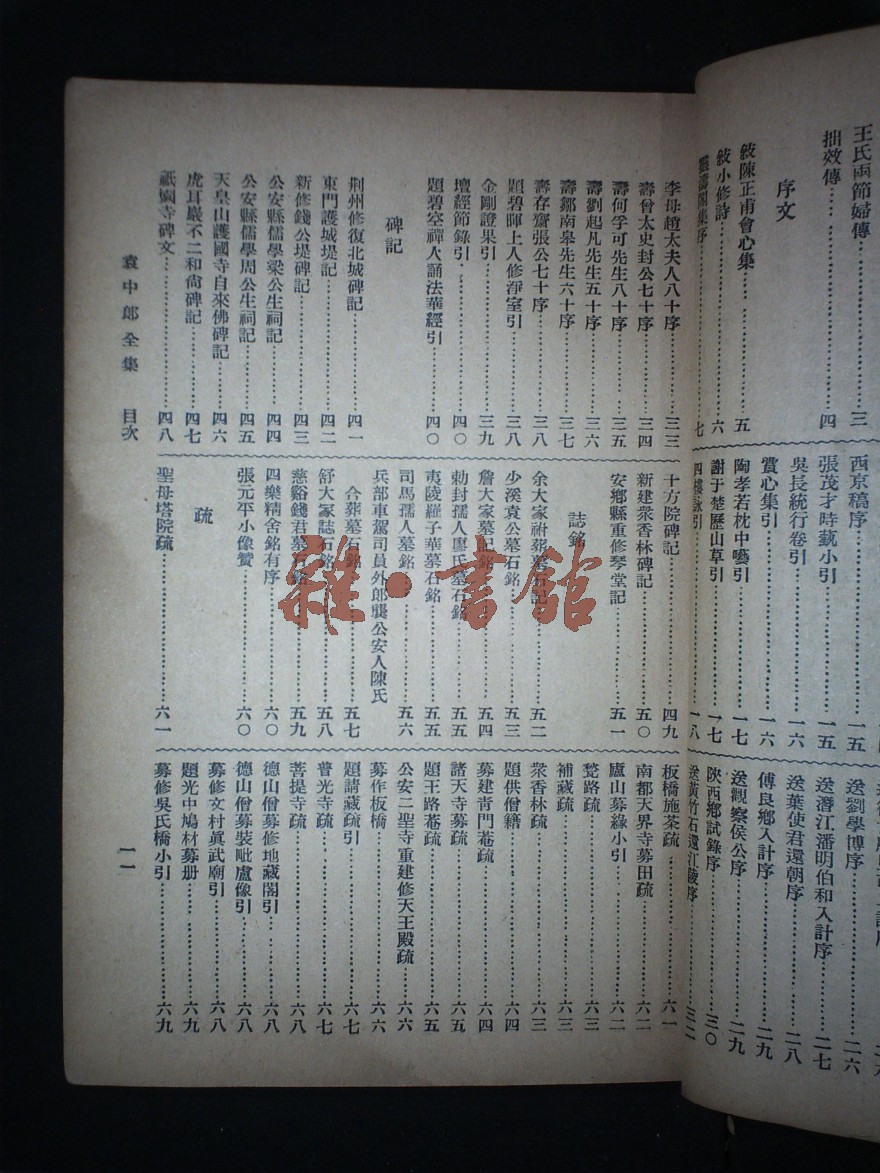 王氏兩節婦傳……三
拙效傳……四
序文
敍陳正甫會心集……五
敍小修詩……六
西京稿序……一五
張茂才時藝小引……一五
吳長統行卷引……一六
賞心集引……一六
陶孝若枕中囈引……一七
謝于楚歷山草引……一七
四樓詠引……一八
送劉學博序……二六
送潛江潘明伯和入計序……二七
送葉使君還朝序……二八
傅良鄉入計序……二九
送觀察侯公序……二九
陝西鄉試錄序……三〇
送黃竹石還江陵序……三二
李母趙太夫人八十序……三三
壽曾太史封公七十序……三四
壽何孚可先生八十序……三五
壽劉起凡先生五十序……三六
壽鄒南皋先生六十序……三七
壽存齋張公七十序……三八
題碧暉上人修淨室引……三八
金剛證果引……三九
壇經節錄引……四〇
題碧空禪人誦法華經引……四〇
碑記
荆州修復北城碑記……四一
東門護城堤記……四二
新修錢公堤碑記……四三
公安縣儒學梁公生祠記……四四
公安縣儒學周公生祠記……四五
天皇山護國寺自來佛碑記……四六
虎耳巖不二和尙碑記……四七
祇園寺碑文……四八
十方院碑記……四九
新建衆香林碑記……五〇
安鄉縣重修琴堂記……五一
誌銘
余大家祔葬墓石記……五二
少溪袁公墓石銘……五三
詹大家墓記銘……五四
勅封孺人廖氏墓石銘……五五
夷陵羅子華墓石銘……五五
司馬孺人墓銘……五六
兵部車駕司員外郎龔公安人陳氏
合葬墓石銘……五七
舒大家誌石銘……五八
慈谿錢君墓石銘……五九
四樂精舍銘有序……六〇
張元平小像贊……六〇
疏
聖母塔院疏……六一
板橋施茶疏……六一
南都天界寺募田疏……六二
廬山募緣小引……六二
甃路疏……六三
補藏疏……六三
衆香林疏……六三
題供僧籍……六四
募建靑門菴疏……六四
諸天寺募疏……六五
題王路菴疏……六五
公安二聖寺重建修天王殿疏……六六
募作板橋……六六
題請藏疏引……六七
普光寺疏……六七
菩提寺疏……六八
德山僧募修地藏閣引……六八
德山僧募裝毗盧像引……六八
募修文村眞武廟引……六八
題光中鳩材募册……六九
募修吳氏橋小引……六九
袁中郎全集　目次
一一
雜·書館